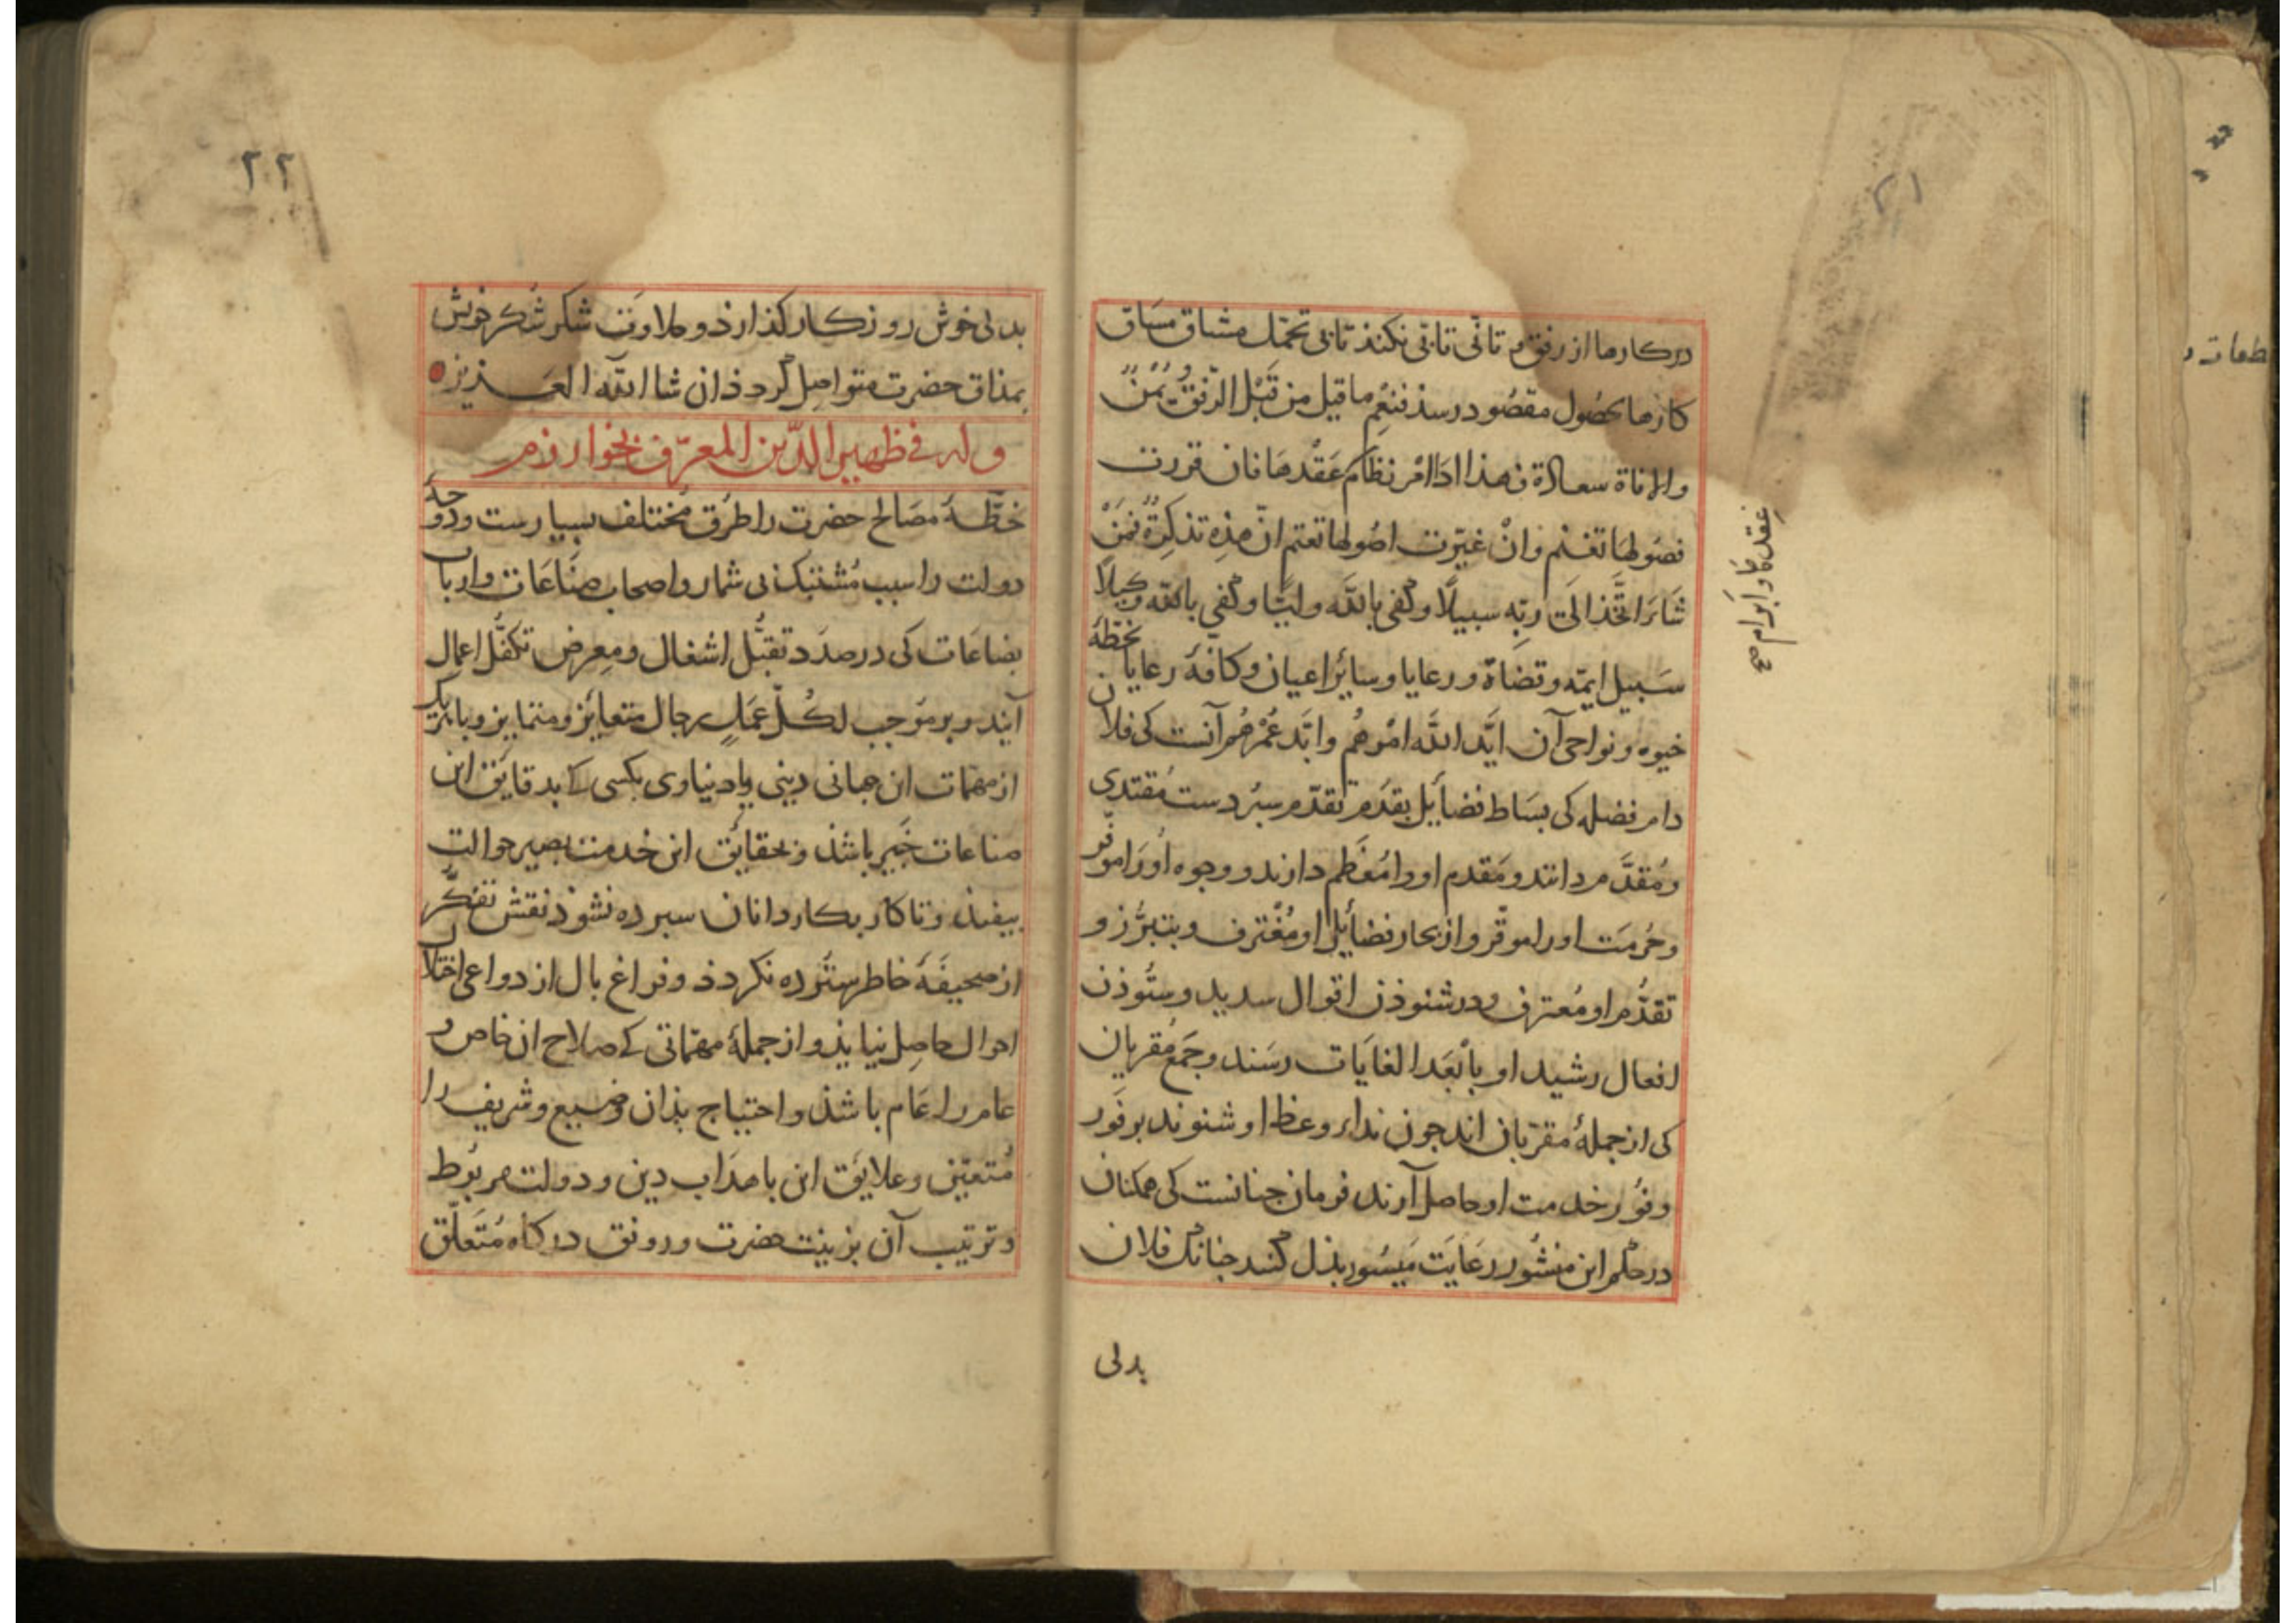 دركارها از رفق و تأنّی تأبّی نكنذ تا بی تحمّل مشاق مساق
كارها بحصُول مقصُود رسذ فنِعْم ما قيل من قَبْل الرّفقُ يُمْنٌ
والاناة سعادة
فصُولها تغنم وانْ غيّرت اصُولها تعتم انّ هذِه تذكِرةٌ فمَنْ
شَاءَ اتَّخَذ الَی ربّه سبيلًا وكفی بالله وليًّا وكفی بالله وكيلًا
سَبيل ايمّه و قضاة و رعايا وسائر اعيان وكافّۀ رعايا بخطّۀ
خيوه و نواحی آن ايَّد الله امْرهُم وابَّد عُمْرهُم آنست كی فلان
دام فضله كی بسَاط فضايل بقدَم تقدّم سپُردست مُقتدی
ومُقدَّم دانند و مَقدم او را مُعَظَّم دارند و وجوه او رَا موفّر
وحُرمَت او را موقّر و از بحار فضايل او مُغترف و بتبرُّز و
تقدُّم او مُعترف و در شنوذن اقوال سديد و ستُوذن
افعال رشيد او بأبْعَد الغايَات رسَند و جَمع مُقريان
كی از جملۀ مقرّبان اند جون نداء وعظ او شنوند بر فَور
وفوُر خدمت او حاصل آرند فرمان جنانست كی همكنان
در حكم اين منشُور رعَايَت مَيسُور بذل كنند جنانك فلان
عِقدها و ابرام صح
بدلی
۲۱
۲۲
بدلی خوش روزكار كذارذ و حلاوَت شكر شُكر خويش
بمذاق حضرت متواصِل كردذ ان شا الله العَـزيز
وله فی ظهير الدّين المعرّف بخوارزم
خطّۀ مصَالح حضرت را طرُق مُختلف بسيارست و دوحۀ
دولت را سبب مُشتبك بی شمار و اصحاب صِنَاعَات و ارباب
بضاعَات كی در صدَد تقبّل اشغال و مِعرض تكفّل اعمال
آيند و بر مُوجب لكُلّ عمَلٍ رجال متعايز و متمايز و با هر يك
از مهمّات اين جهانی دينی يا دنياوی بكسی كی بدقايق اين
صناعات خَبير باشذ و بحقايق اين خدمت بصير حوالت
بيفتذ و تا كار بكاردانان سبرده نشوذ نقش تفكّر
از صحيفۀ خاطر سترده نكردذ و فراغ بال از دواعی اختلال
احوال حاصِل نيايذ و از جملۀ مهمّاتی كی صلاح ان خاص و
عام را عَام باشذ و احتياج بذان وضيع و شريف را
مُتعيّن و علايق اين باهدَاب دين و دولت مربوُط
و ترتيب آن بزينت حضرت و رونق دركاه مُتعلّق